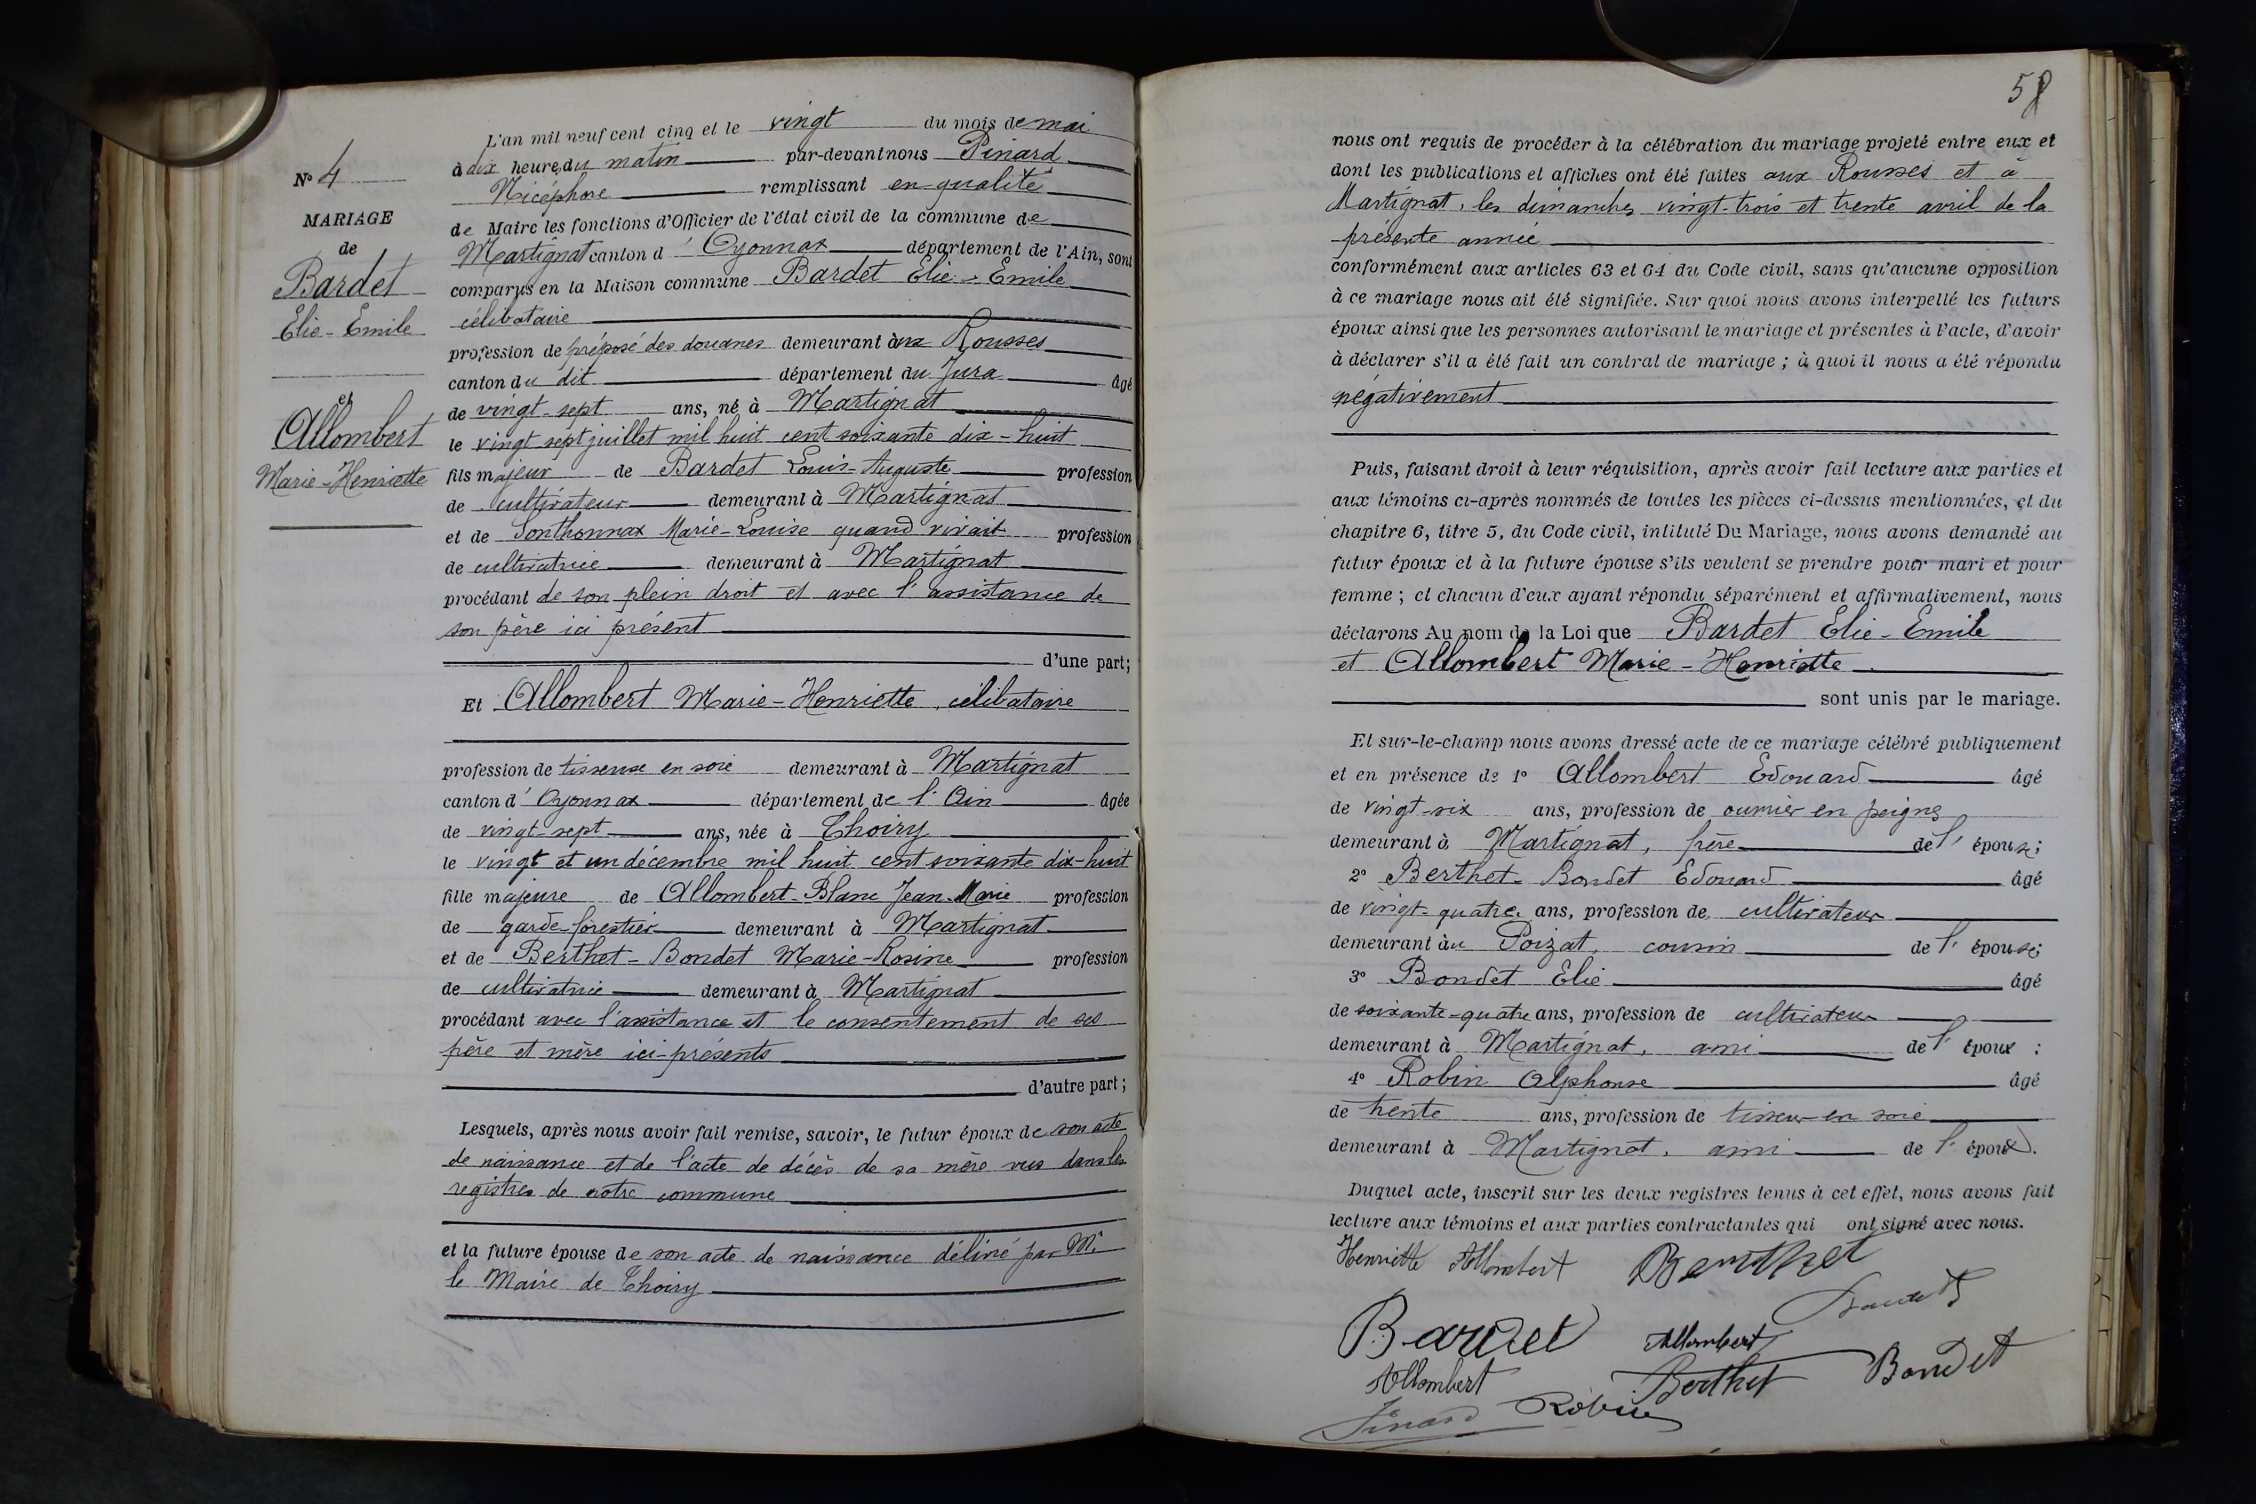 N° 4
MARIAGE
de
Bardet
Elie-Emile
et
Allombert
Marie-Henriette
L'an mil neuf cent cinq et le vingt du mois de mai
à dix heures du matin par-devant nous Pinard
Nicéphore remplissant en qualité
de Maire les fonctions d'Officier de l'état civil de la commune de
Martignat canton d'Oyonnax département de l'Ain, sont
comparus en la Maison commune Bardet Elie-Emile
célibataire
profession de préposé des douanes demeurant aux Rousses
canton du dit département du Jura âgé
de vingt-sept ans, né à Martignat
le vingt sept juillet mil huit cent soixante dix-huit
fils majeur de Bardet Louis-Auguste profession
de cultivateur demeurant à Martignat
et de Sonthonnax Marie-Louise quand vivait profession
de cultivatrice demeurant à Martignat
procédant de son plein droit et avec l'assistance de
son père ici présent
d'une part;
Et Allombert Marie-Henriette, célibataire
profession de tisseuse en soie demeurant à Martignat
canton d'Oyonnax département de l'Ain âgée
de vingt-sept ans, née à Thoiry
le vingt et un décembre mil huit cent soixante dix-huit
fille majeure de Allombert-Blanc Jean-Marie profession
de garde-forestier demeurant à Martignat
et de Berthet-Bondet Marie-Rosine profession
de cultivatrice demeurant à Martignat
procédant avec l'assistance et le consentement de ses
père et mère ici-présents
d'autre part;
Lesquels, après nous avoir fait remise, savoir, le futur époux de son acte
de naissance et de l'acte de décès de sa mère vus dans les
registres de notre commune
et la future épouse de son acte de naissance délivré par Mr
le Maire de Thoiry
58
nous ont requis de procéder à la célébration du mariage projeté entre eux et
dont les publications et affiches ont été faites aux Rousses et à
Martignat, les dimanches vingt-trois et trente avril de la
présente année
conformément aux articles 63 et 64 du Code civil, sans qu'aucune opposition
à ce mariage nous ait été signifiée. Sur quoi nous avons interpellé les futurs
époux ainsi que les personnes autorisant le mariage et présentes à l'acte, d'avoir
à déclarer s'il a été fait un contrat de mariage; à quoi il nous a été répondu
négativement
Puis, faisant droit à leur réquisition, après avoir fait lecture aux parties et
aux témoins ci-après nommés de toutes les pièces ci-dessus mentionnées, et du
chapitre 6, titre 5, du Code civil, intitulé Du Mariage, nous avons demandé au
futur époux et à la future épouse s'ils veulent se prendre pour mari et pour
femme; et chacun d'eux ayant répondu séparément et affirmativement, nous
déclarons Au nom de la Loi que Bardet Elie-Emile
et Allombert Marie-Henriette
sont unis par le mariage.
Et sur-le-champ nous avons dressé acte de ce mariage célébré publiquement
et en présence de 1° Allombert Edouard âgé
de vingt-six ans, profession de ouvrier en peignes
demeurant à Martignat, frère de l'épouse;
2° Berthet-Bondet Edouard âgé
de vingt-quatre ans, profession de cultivateur
demeurant au Poizat, cousin de l'épouse;
3° Bondet Elie âgé
de soixante-quatre ans, profession de cultivateur
demeurant à Martignat, ami de l'époux;
4° Robin Alphonse âgé
de trente ans, profession de tisseur en soie
demeurant à Martignat, ami de l'époux.
Duquel acte, inscrit sur les deux registres tenus à cet effet, nous avons fait
lecture aux témoins et aux parties contractantes qui ont signé avec nous.
Henriette Allombert Berthet
Bardet
Bardet Allombert
Allombert Berthet Bondet
Pinard Robin